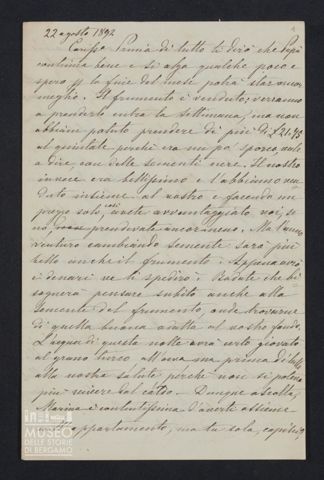 22 agosto 1892
Prima di tutto ti dirò che Pepi
continua bene e si alza qualche poco e
spero p la fine del mese potrà star ancora
meglio. Il frumento è venduto; verranno
a prenderlo entro la settimana, ma non
abbiam potuto prendere di più di £21.75
al quintale perchè era un po' sporco, vale
a dire con delle sementi nere. Il nostro
invece era bellissimo e l'abbiamo ven
duto insieme al vostro e facendo un
prezzo solo, avete avvantaggiato voi, se
no, prendevate ancor meno. Ma l'anno
venturo cambiando semente sarà più
bello anche il frumento. Appena avrò
i denari ve li spedirò. Badate che bi
sognerà pensare subito anche alla
semente del frumento, onde trovarne
di quella buona adatta al vostro fondo.
L'acqua di questa notte avrà certo giovato
al grano turco ma prima di tutto
alla nostra salute perchè non si poteva
più vivere dal caldo. Dunque ascolta,
Marina è contentissima d'averti assieme
appartamento, ma tu sola, capisci,
MUSEO
DELLE STORIE
DI BERGAMO